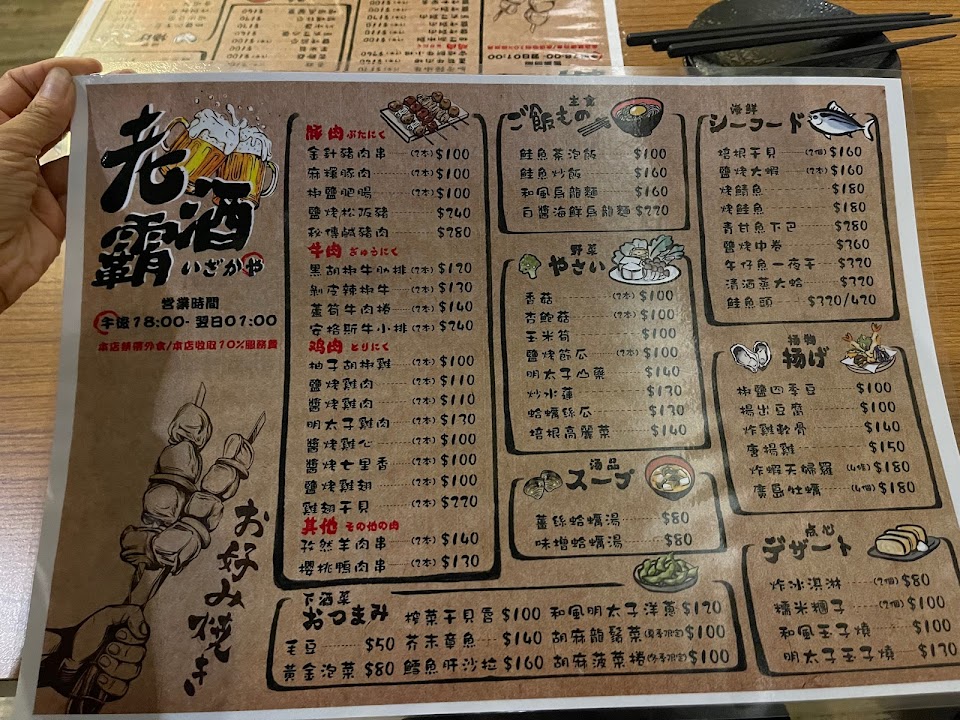 老酒霸
いざかや
營業時間
午後18:00-翌日01:00
本店禁帶外食/本店收取10%服務費
お好み焼き
豚肉 ぶたにく
金針豬肉串 (2本) $100
麻糬豚肉 (2本) $100
椒鹽肥腸 (2本) $100
鹽烤松阪豬 $240
秘傳鹹豬肉 $280
牛肉 ぎゅうにく
黑胡椒牛肋排 (2本) $120
剝皮辣椒牛 (2本) $130
蘆筍牛肉捲 (2本) $140
安格斯牛小排 (2本) $240
鸡肉 とりにく
柚子胡椒雞 (2本) $100
鹽烤雞肉 (2本) $110
醬烤雞肉 (2本) $110
明太子雞肉 (2本) $130
醬烤雞心 (2本) $100
醬烤七里香 (2本) $100
鹽烤雞翅 (2本) $100
雞翅干貝 (2本) $220
其他 その他の肉
孜然羊肉串 (2本) $140
櫻桃鴨肉串 (2本) $130
主食
ご飯もの
鮭魚茶泡飯 $100
鮭魚炒飯 $160
和風烏龍麵 $160
白醬海鮮烏龍麵 $220
野菜
やさい
香菇 (2本) $100
杏鮑菇 (2本) $100
玉米筍 $100
鹽烤節瓜 (2本) $100
明太子山藥 $140
炒水蓮 $130
蛤蠣絲瓜 $130
培根高麗菜 $140
湯品
スープ
薑絲蛤蠣湯 $80
味增蛤蠣湯 $80
海鮮
シーフード
培根干貝 (2個) $160
鹽烤大蝦 (2本) $160
烤鯖魚 $180
烤鮭魚 $180
青甘魚下巴 $280
鹽烤中卷 $360
午仔魚一夜干 $320
清酒菜大蛤 $320
鮭魚頭 $320/420
揚物
揚げ
椒鹽四季豆 $100
揚出豆腐 $100
炸雞軟骨 $140
唐揚雞 $150
炸蝦天婦羅 (4條) $180
廣島牡蠣 (4個) $180
点心
デザート
炸冰淇淋 (2個) $80
糯米糰子 (2個) $100
和風玉子燒 $100
明太子玉子燒 $130
下酒菜
おつまみ
毛豆 $50
黃金泡菜 $80
榨菜干貝唇 $100
芥末章魚 $140
鱈魚肝沙拉 $160
和風明太子洋蔥 $120
胡麻龍鬚菜 $100
胡麻菠菜捲 $100